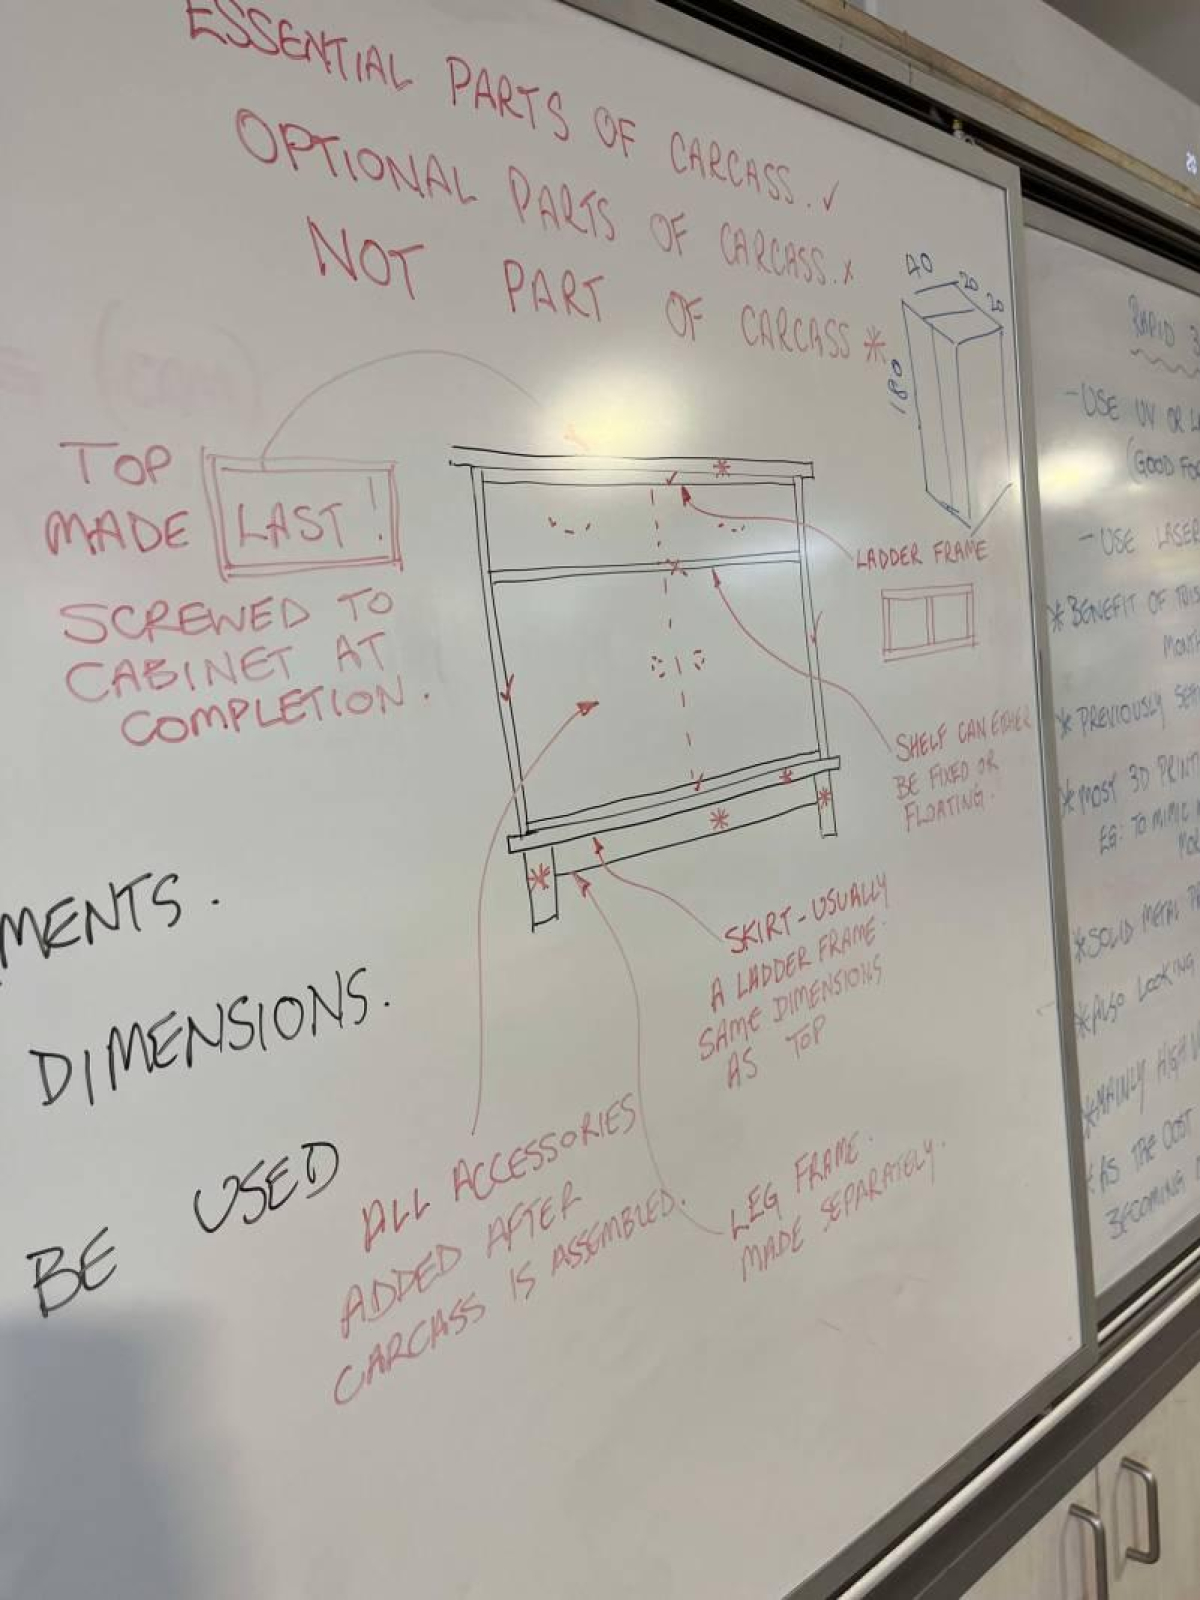 ESSENTIAL PARTS OF CARCASS. ✓
OPTIONAL PARTS OF CARCASS. x
NOT PART OF CARCASS *
40
20
20
180
TOP
MADE LAST!
SCREWED TO
CABINET AT
COMPLETION.
LADDER FRAME
SHELF CAN EITHER
BE FIXED OR
FLOATING.
SKIRT - USUALLY
A LADDER FRAME.
SAME DIMENSIONS
AS TOP
LEG FRAME.
MADE SEPARATELY.
ALL ACCESSORIES
ADDED AFTER
CARCASS IS ASSEMBLED.
MENTS.
DIMENSIONS.
BE USED
RAPID 3
- USE UV OR LA
(GOOD FO
- USE LASER
* BENEFIT OF THIS
MONTH
* PREVIOUSLY
* MOST 3D PRINT
EG: TO MIMIC
* SOLID METAL
* ALSO LOOKING
* MAINLY HIGH
* AS THE COST
BECOMING